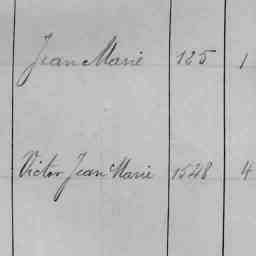 Jean Marie 125 1
Victor Jean Marie 1528 4